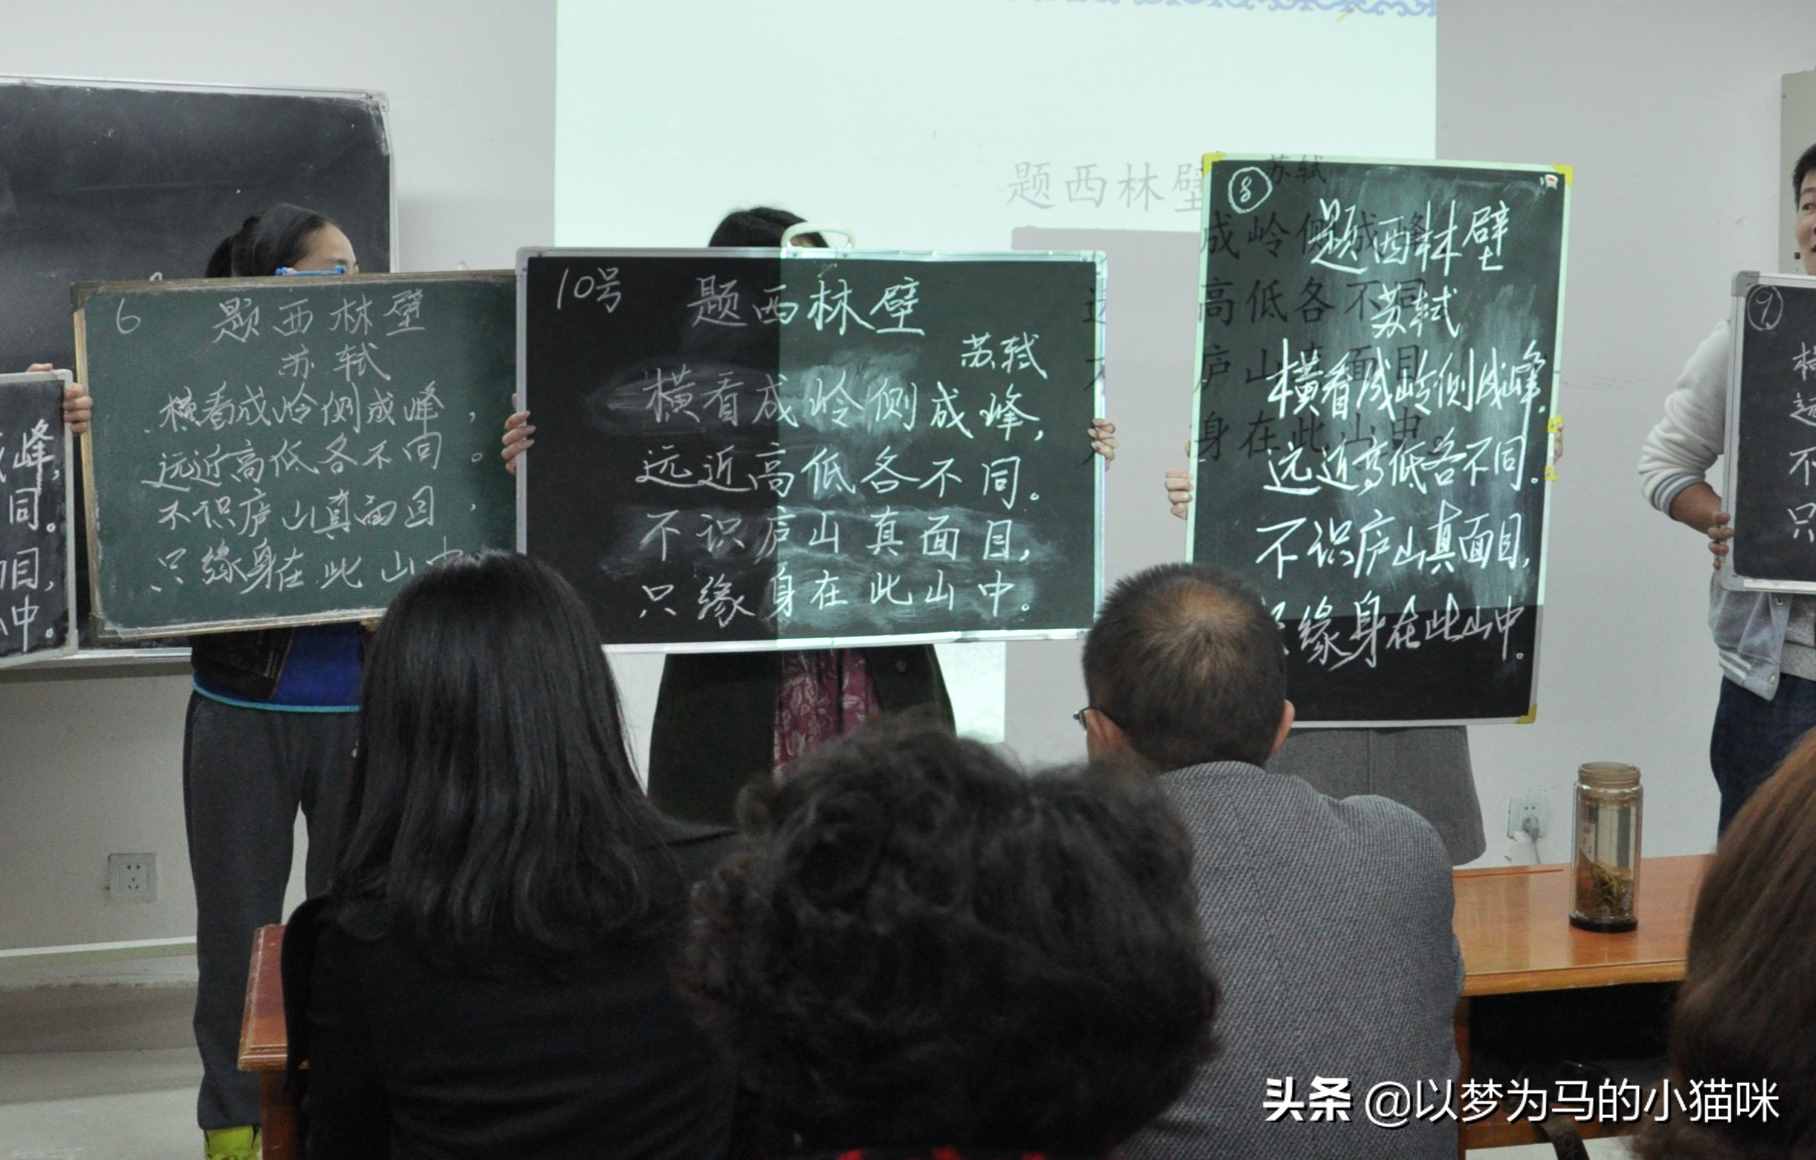 峰,
同。
目,
中。
6
题西林壁
苏轼
横看成岭侧成峰，
远近高低各不同。
不识庐山真面目，
只缘身在此山中
10号
题西林壁
苏轼
横看成岭侧成峰,
远近高低各不同。
不识庐山真面目,
只缘身在此山中。
题西林壁
苏轼
成岭侧成峰
高低各不同
庐山真面目
身在此山中
8
题西林壁
苏轼
横看成岭侧成峰.
远近高低各不同.
不识庐山真面目,
缘身在此山中.
9
不
只
头条 @以梦为马的小猫咪